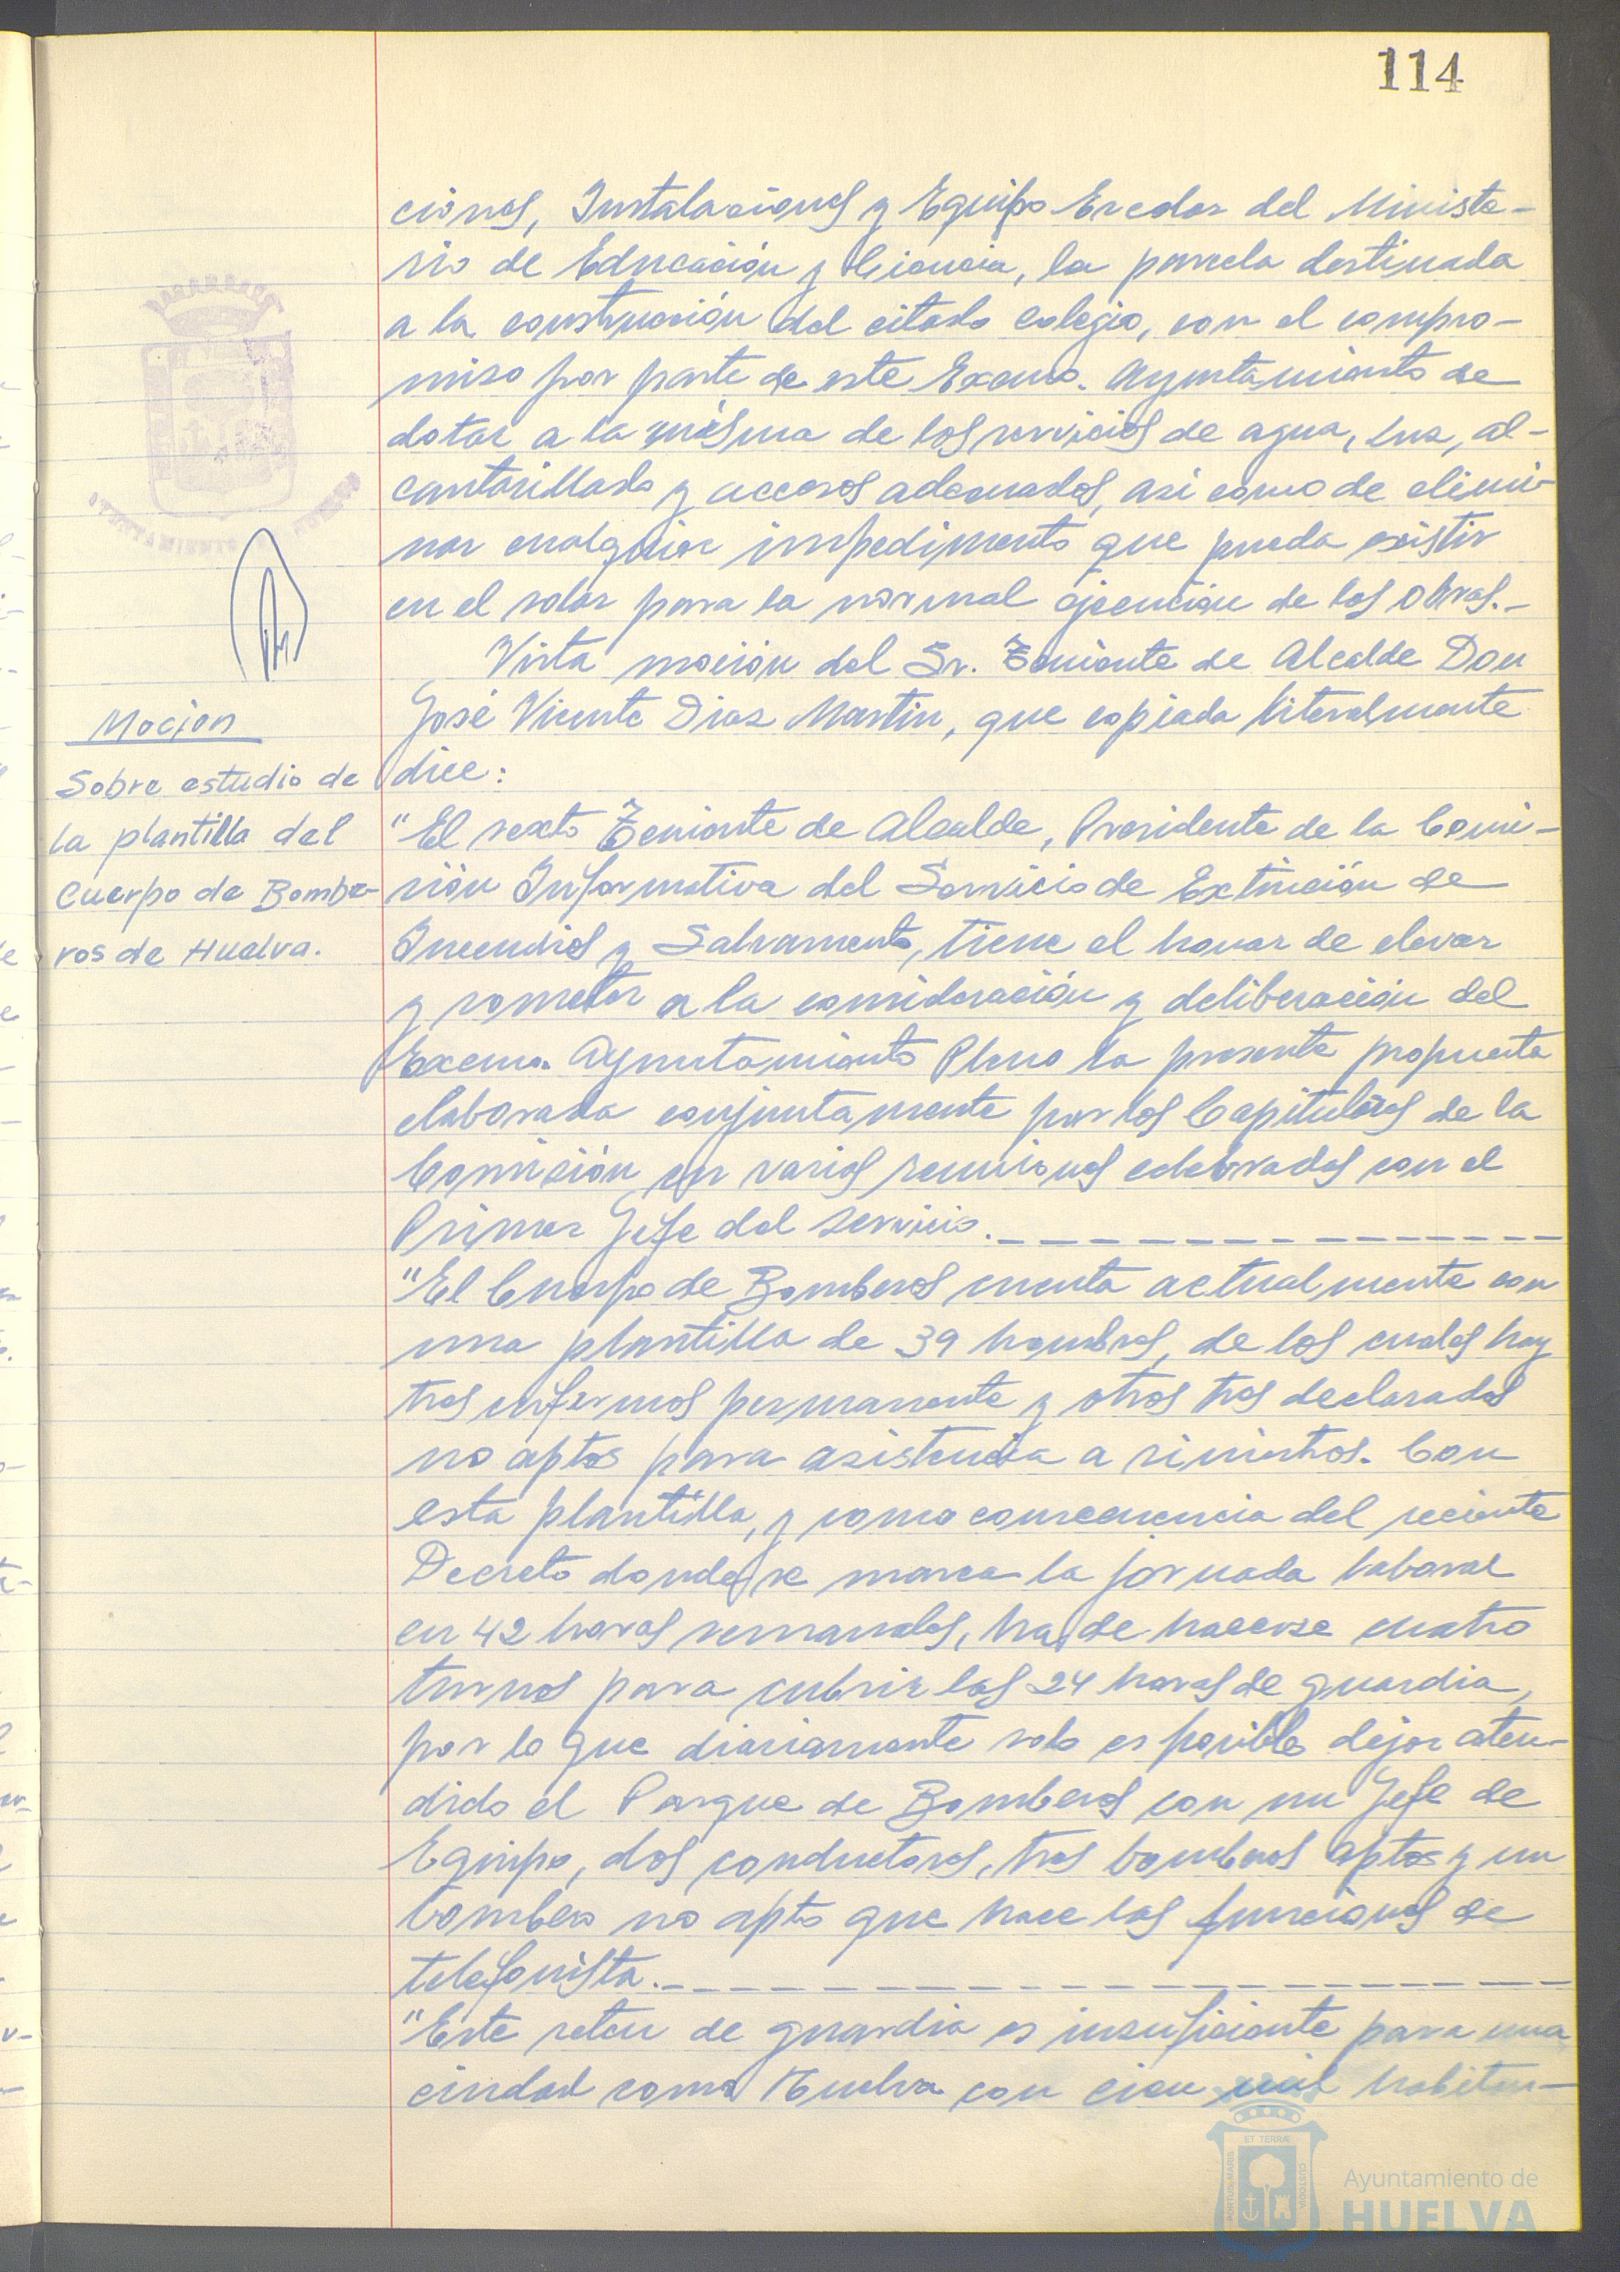 114
ciones, Instalaciones y Equipo Escolar del Ministe-
rio de Educación y Ciencia, la parcela destinada
a la construcción del citado colegio, con el compro-
miso por parte de este Excmo. Ayuntamiento de
dotar a la misma de los servicios de agua, luz, al-
cantarillado y accesos adecuados, asi como de elimi-
nar cualquier impedimento que pueda existir
en el solar para la normal ejecución de las obras.-
Vista moción del Sr. Teniente de Alcalde Don
José Vicente Diaz Martin, que copiada literalmente
dice:
Mocion
Sobre estudio de
la plantilla del
Cuerpo de Bombe-
ros de Huelva.
"El sexto Teniente de Alcalde, Presidente de la Comi-
sión Informativa del Servicio de Extinción de
Incendios y Salvamento, tiene el honor de elevar
y someter a la consideración y deliberación del
Excmo. Ayuntamiento Pleno la presente propuesta
elaborada conjuntamente por los Capitulares de la
Comisión en varias reuniones celebradas con el
Primer Jefe del Servicio.
"El Cuerpo de Bomberos cuenta actualmente con
una plantilla de 39 hombres, de los cuales hay
tres enfermos permanente y otros tres declarados
no aptos para asistencia a siniestros. Con
esta plantilla, y como consecuencia del reciente
Decreto donde se marca la jornada laboral
en 42 horas semanales, ha de hacerse cuatro
turnos para cubrir las 24 horas de guardia,
por lo que diariamente solo es posible dejar aten-
dido el Parque de Bomberos con un Jefe de
Equipo, dos conductores, tres bomberos aptos y un
bombero no apto que hace las funciones de
telefonista.
"Este reten de guardia es insuficiente para una
ciudad como Huelva con cien mil habitan-
PORTUS MARIS
ET TERRÆ
CUSTODIA
Ayuntamiento de
HUELVA